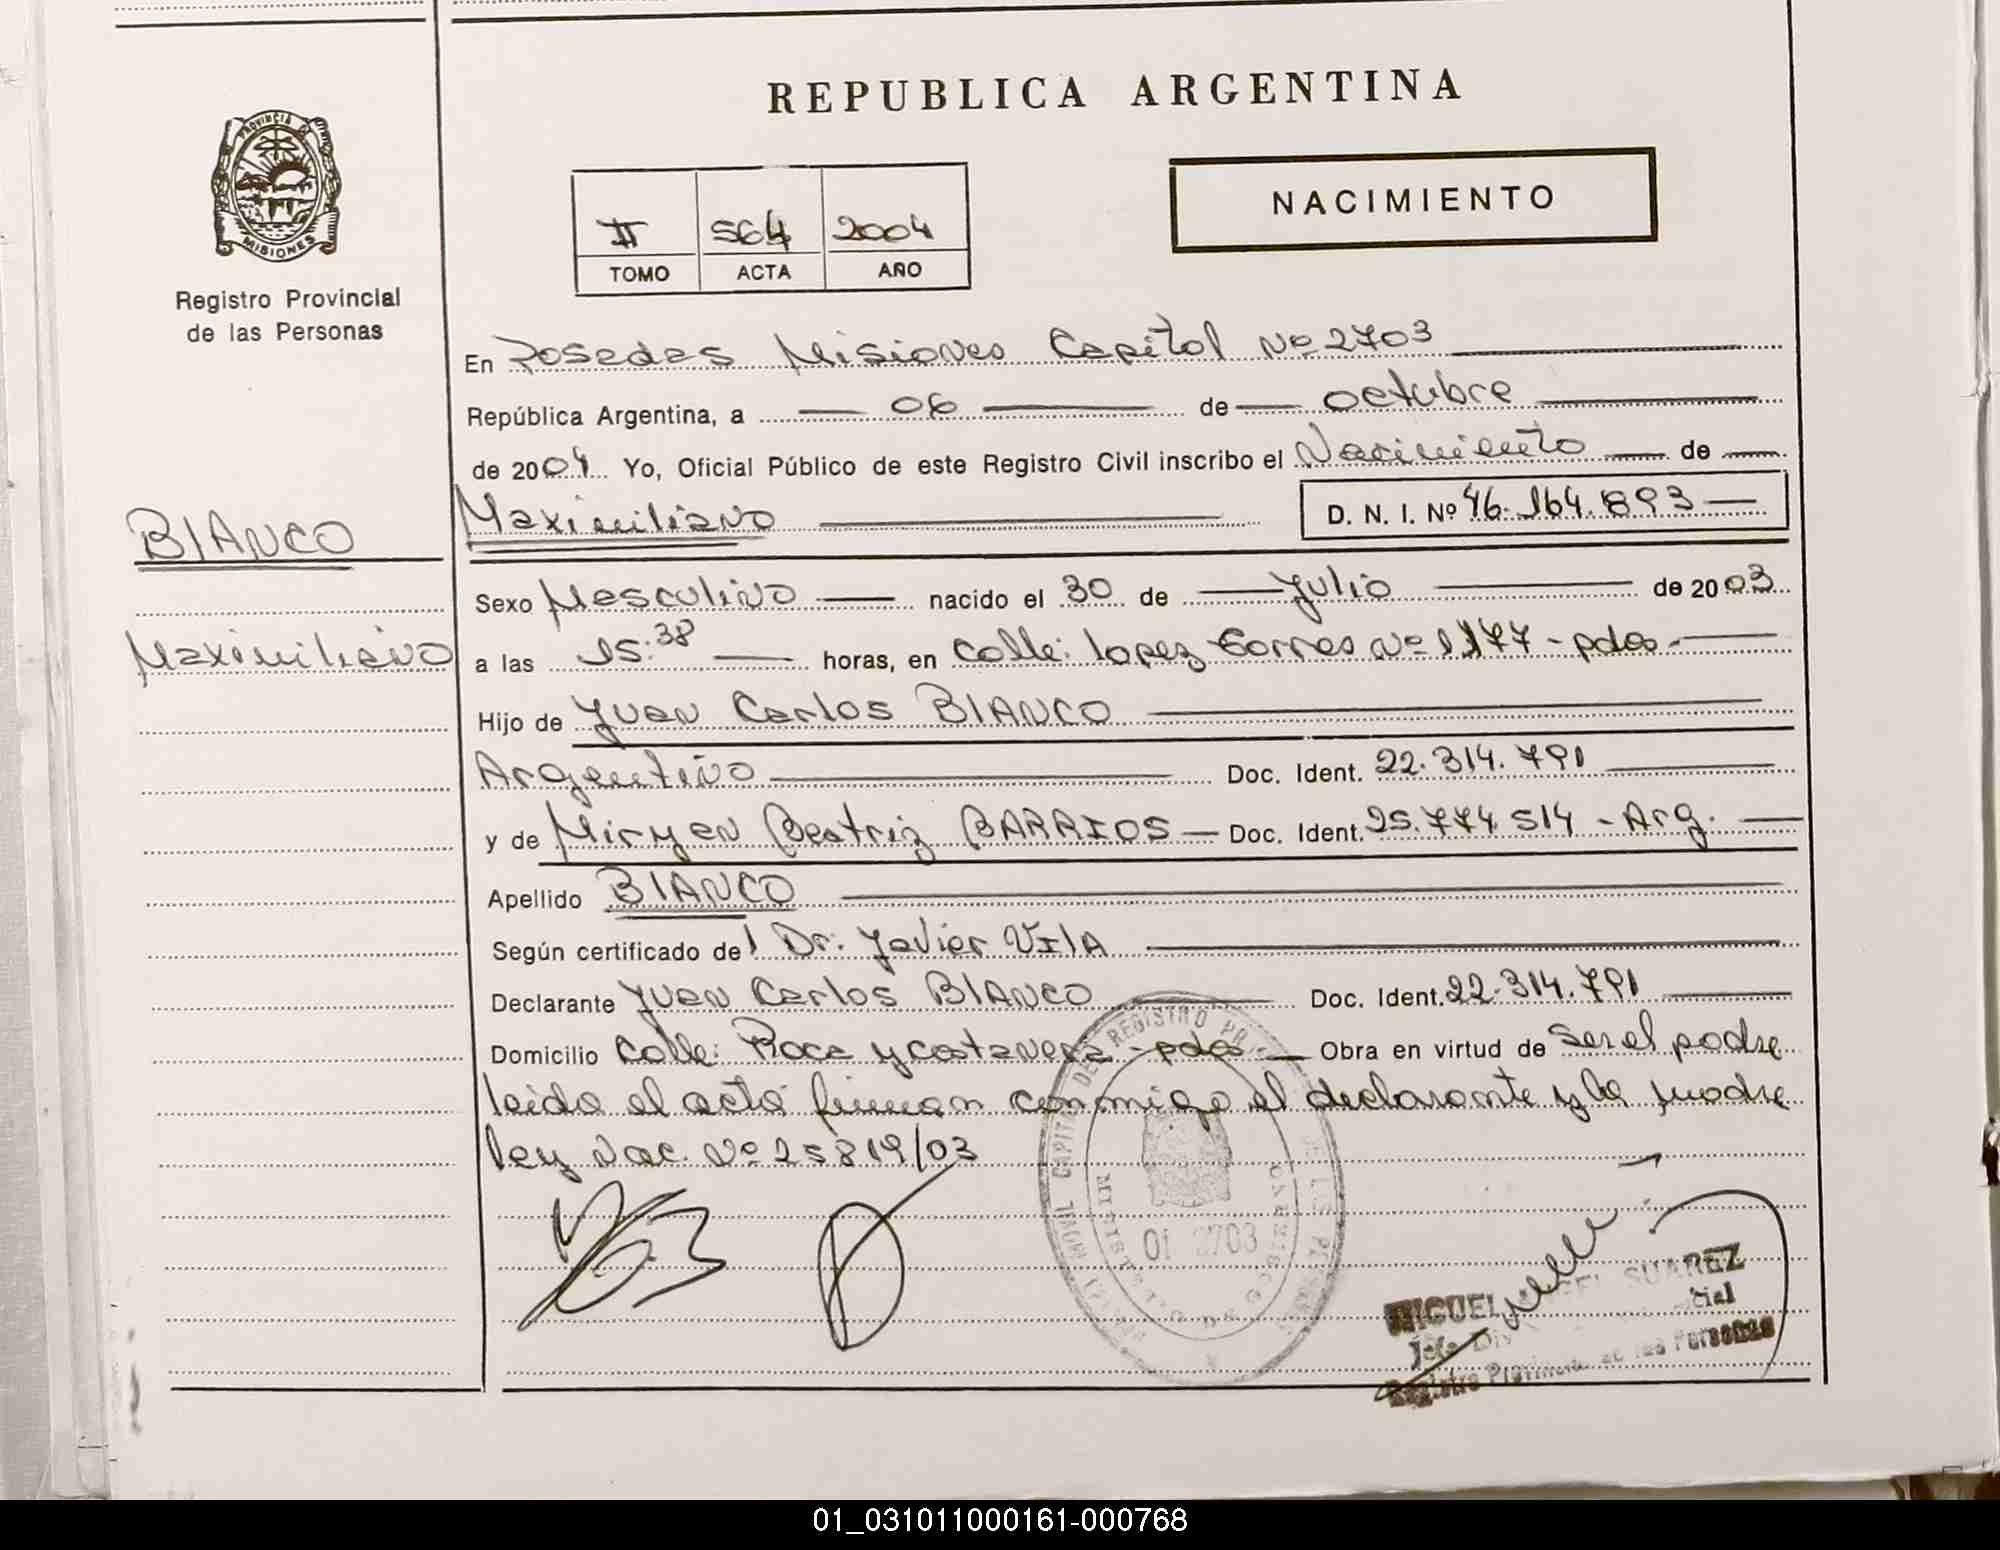 REPUBLICA ARGENTINA
PROVINCIA DE
MISIONES
Registro Provincial
de las Personas
NACIMIENTO
II 564 2004
TOMO ACTA AÑO
En Posadas Misiones Capital Nº 2703
República Argentina, a 06 de octubre
de 2004 Yo, Oficial Público de este Registro Civil inscribo el Nacimiento de
Maximiliano D. N. I. Nº 46.164.893
BIANCO
Maximiliano
Sexo Masculino nacido el 30 de Julio de 2003
a las 15:38 horas, en Calle: Lopez Torres Nº 1177 - pdas -
Hijo de Juan Carlos BIANCO
Argentino Doc. Ident. 22.314.791
y de Miryen Beatriz BARRIOS Doc. Ident. 25.774.514 - Arg.
Apellido BIANCO
Según certificado del Dr: Javier VILA
Declarante Juan Carlos BIANCO Doc. Ident. 22.314.791
Domicilio Calle: Roca y - pdas - Obra en virtud de ser el padre
leida el acta firman conmigo el declarante y la madre
ley Nac. Nº 25819/03
REGISTRO
01 2703
MIGUEL SUAREZ
Jefe
Registro Provincial de las Personas
01_031011000161-000768